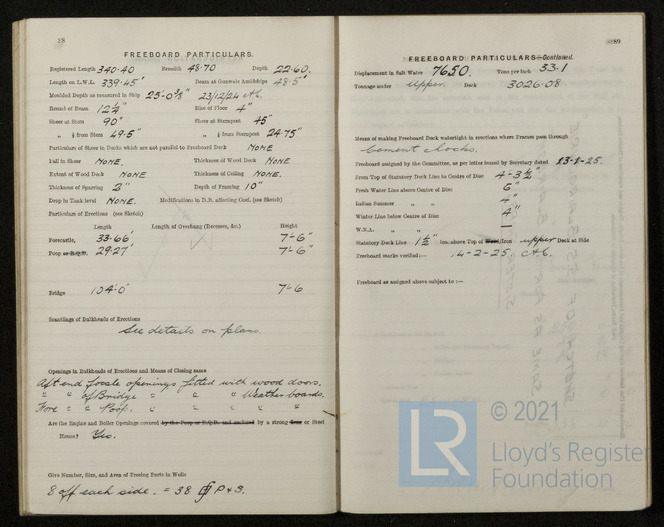 88
FREEBOARD PARTICULARS.
Registered Length 340.40 Breadth 48.70 Depth 22.60.
Length on L.W.L. 339.45' Beam at Gunwale Amidships 48.5'
Moulded Depth as measured in Ship 25-0⅜" 23/12/24
Round of Beam 12¼" Rise of Floor 4"
Sheer at Stem 90" Sheer at Sternpost 45"
" ⅛ from Stem 49.5" " ⅛ from Sternpost 24.75"
Particulars of Sheer in Decks which are not parallel to Freeboard Deck NONE
Fall in Sheer NONE. Thickness of Wood Deck NONE
Extent of Wood Deck NONE Thickness of Ceiling NONE.
Thickness of Sparring 2" Depth of Framing 10"
Drop in Tank level NONE. Modifications in D.B. affecting Coef. (see Sketch)
Particulars of Erections (see Sketch)
Length Length of Overhang (Recesses, &c.) Height
Forecastle, 33.66' 7'-6"
Poop or R.Q.D. 29.27' 7'-6"
Bridge 104.0' 7'-6
Scantlings of Bulkheads of Erections
See details on plans.
Openings in Bulkheads of Erections and Means of Closing same
Aft end focsle openings fitted with wood doors.
" " of Bridge " " " Weather boards.
Fore " " Poop. " " " "
Are the Engine and Boiler Openings covered by the Poop or R.Q.D. and enclosed by a strong Iron or Steel
House? Yes.
Give Number, Size, and Area of Freeing Ports in Wells
8 off each side. = 38 P & S.
89
FREEBOARD PARTICULARS—Continued.
Displacement in Salt Water 7650. Tons per inch 33.1
Tonnage under Upper. Deck 3026.08.
Means of making Freeboard Deck watertight in erections where Frames pass through
Cement chocks.
Freeboard assigned by the Committee, as per letter issued by Secretary dated 13-1-25.
From Top of Statutory Deck Line to Centre of Disc 4-3½"
Fresh Water Line above Centre of Disc 6"
Indian Summer " " 4"
Winter Line below Centre of Disc 4"
W.N.A. " " —
Statutory Deck Line 1½" ins. above Top of Wood/Iron upper Deck at Side
Freeboard marks verified:—
Freeboard as assigned above subject to :—
© 2021
LR
Lloyd's Register
Foundation